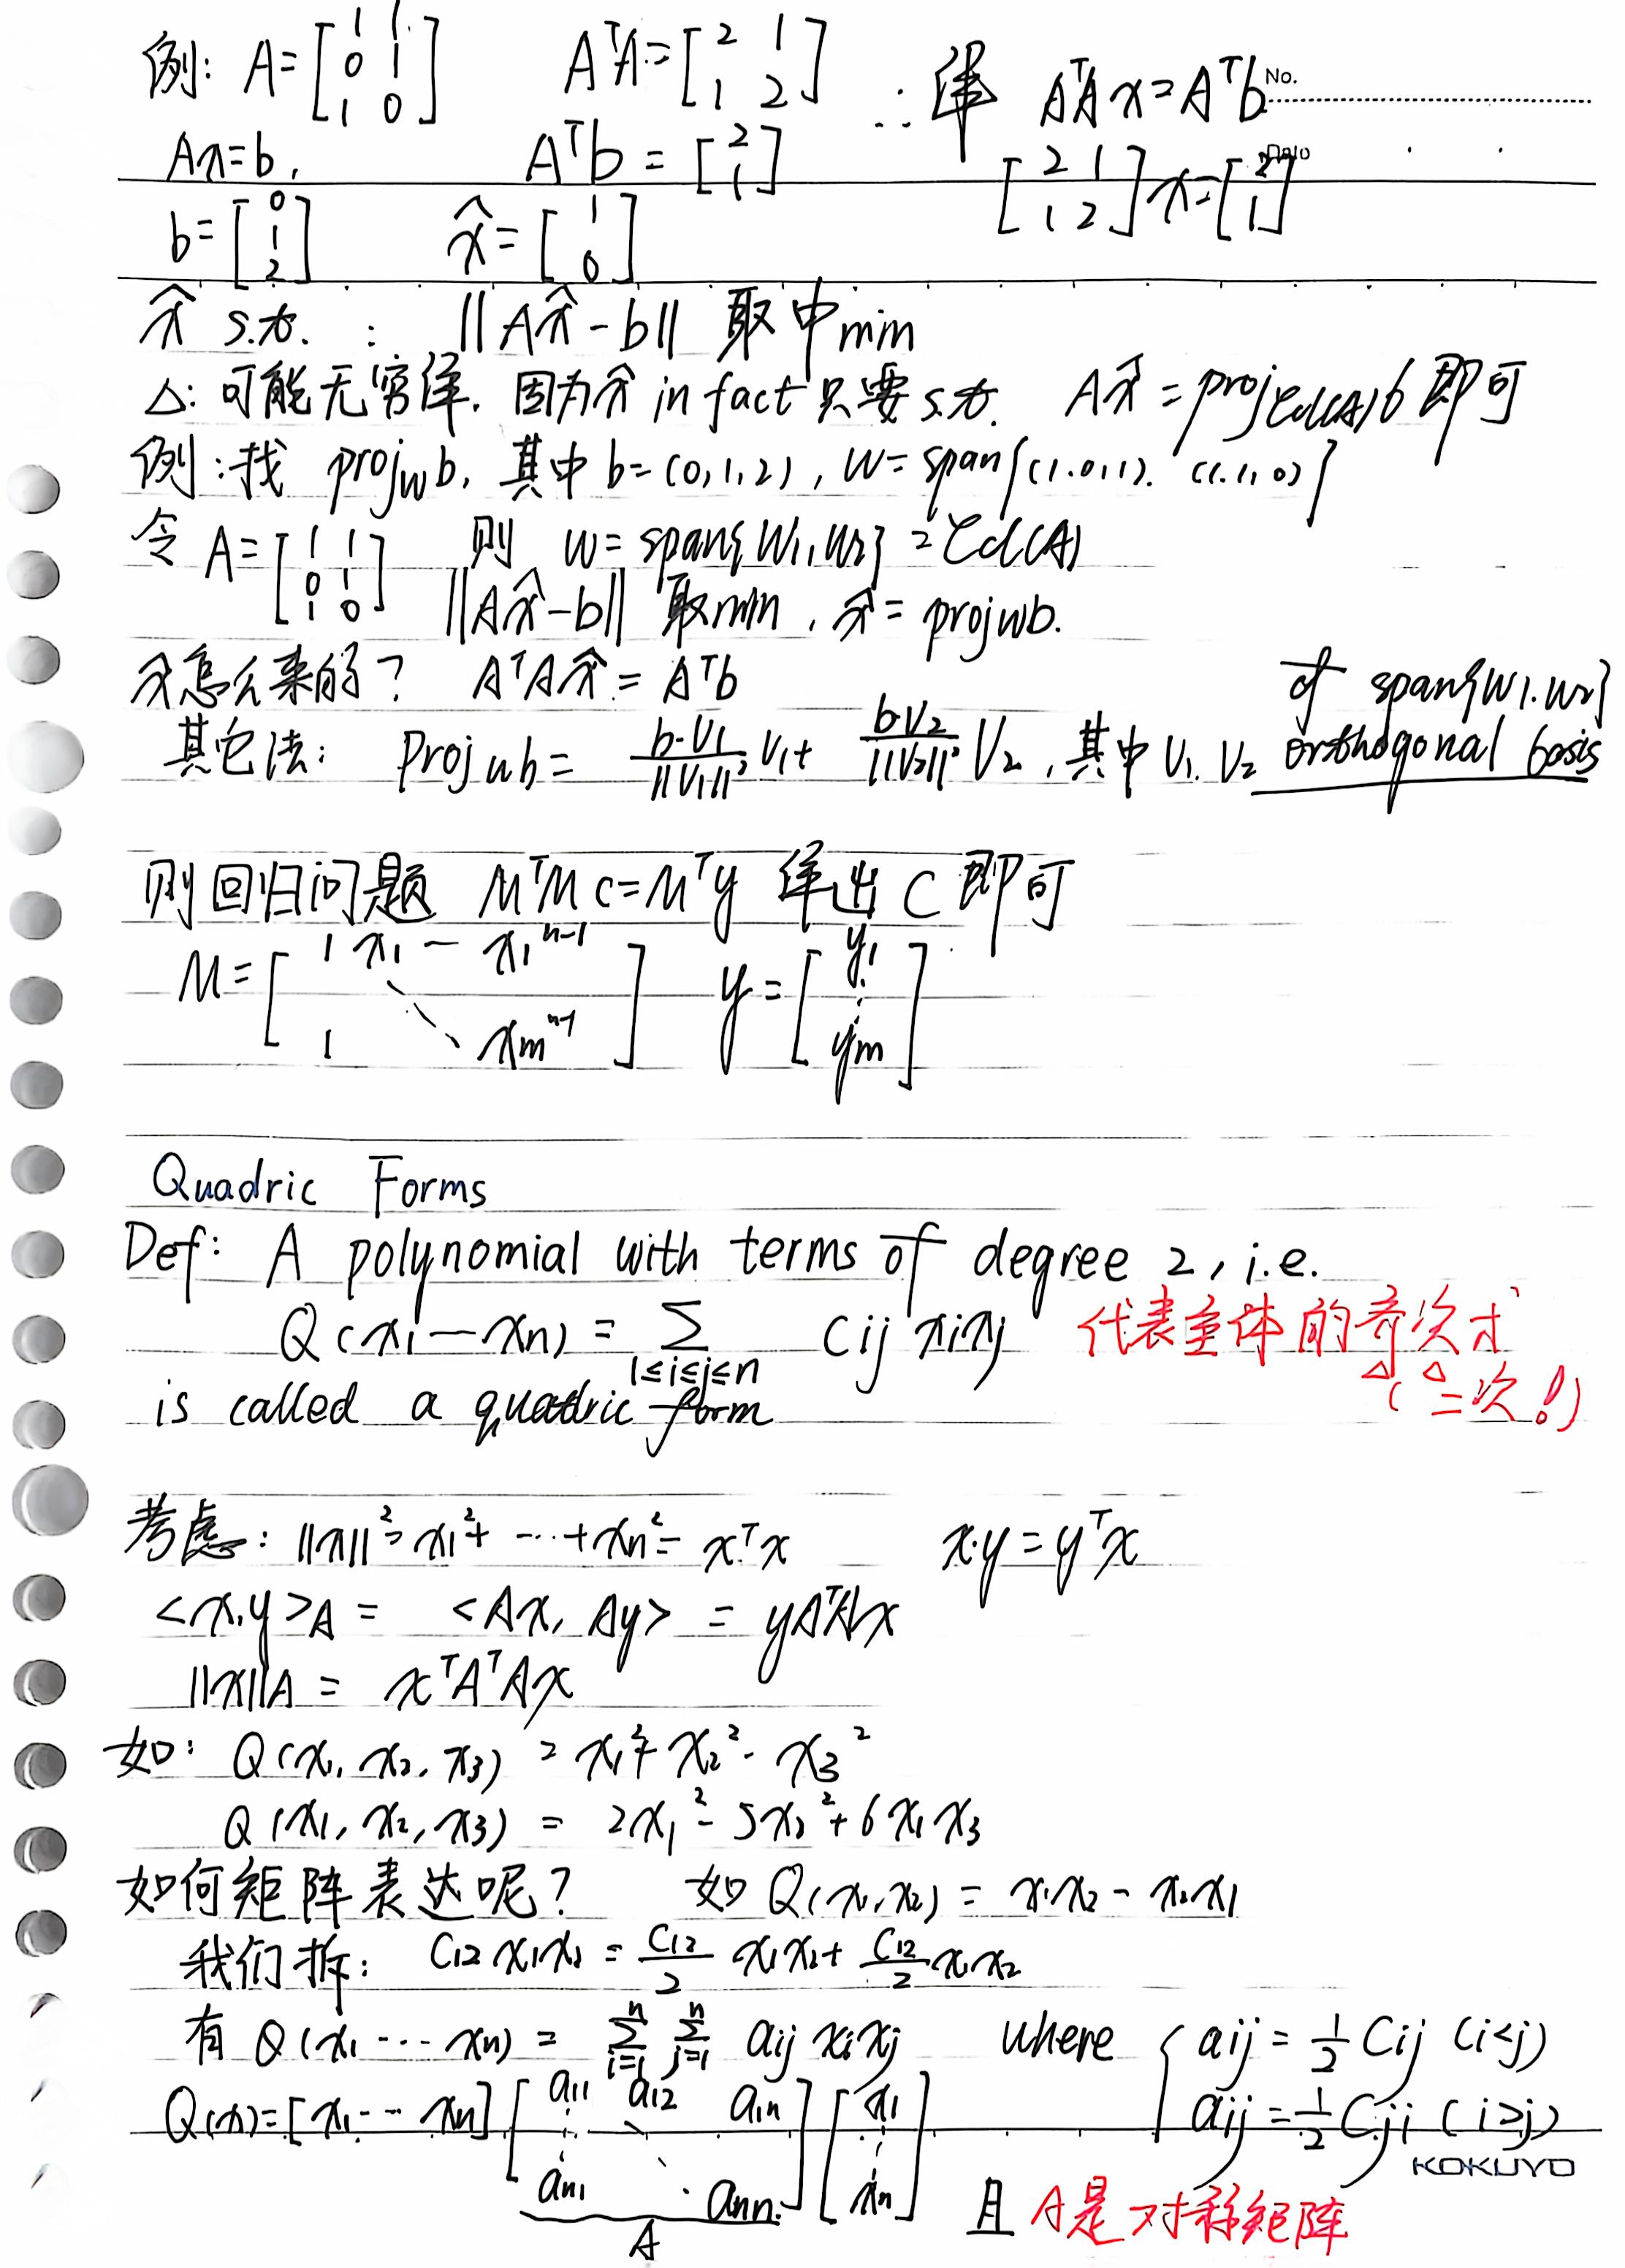 例: A=[1 1; 0 1; 1 0]  AᵀA=[2 1; 1 2]  ∴ 解 AᵀAx=Aᵀb  No.
Ax=b,  Aᵀb=[2; 1]  [2 1; 1 2]x=[2; 1]
b=[0; 1; 2]  x̂=[1; 0]
x̂ s.t. : ||Ax̂-b|| 取中min
△: 可能无穷解. 因为x̂ in fact 只要 s.t. Ax̂ = proj_Col(A) b 即可
例:找 proj_w b, 其中 b=(0,1,2), W=span{(1.0,1). (1.1,0)}
令 A=[1 1; 0 1; 1 0]  则 W=span{W1,W2}=Col(A)
||Ax̂-b|| 取min, x̂=proj_w b.
x̂怎么来的? AᵀAx̂=Aᵀb  of span{W1.W2}
其它法: Proj_w b = b·V1/||V1||² V1 + b·V2/||V2||² V2, 其中 V1. V2 orthogonal basis
则回归问题 MᵀMc=Mᵀy 解出 C 即可
M=[1 x1 — x1ⁿ⁻¹; ⋱; 1 xmⁿ⁻¹]  y=[y1; ⋮; ym]
Quadric Forms
Def: A polynomial with terms of degree 2, i.e.
Q(x1—xn) = Σ_{1≤i≤j≤n} Cij xixj  代表全体的齐次式
is called a quadric form  (二次!)
考虑: ||x||²=x1²+ ··· +xn²= xᵀx  x·y=yᵀx
<x,y>A = <Ax, Ay> = yAᵀAx
||x||A = xᵀAᵀAx
如: Q(x1, x2, x3) = x1²+x2²-x3²
Q(x1, x2, x3) = 2x1²-5x2²+6x1x3
如何矩阵表达呢?  如 Q(x1,x2) = x1x2 - x2x1
我们拆: C12 x1x2 = C12/2 x1x2 + C12/2 x1x2
有 Q(x1 ··· xn) = Σ_{i=1}^n Σ_{j=1}^n aij xixj  where { aij = 1/2 Cij (i<j)
Q(x)=[x1 ·· xn][a11 a12 a1n; ⋮ ⋱; an1 · ann][x1; ⋮; xn]  aij = 1/2 Cji (i≥j)
KOKUYO
A  且 A是对称矩阵